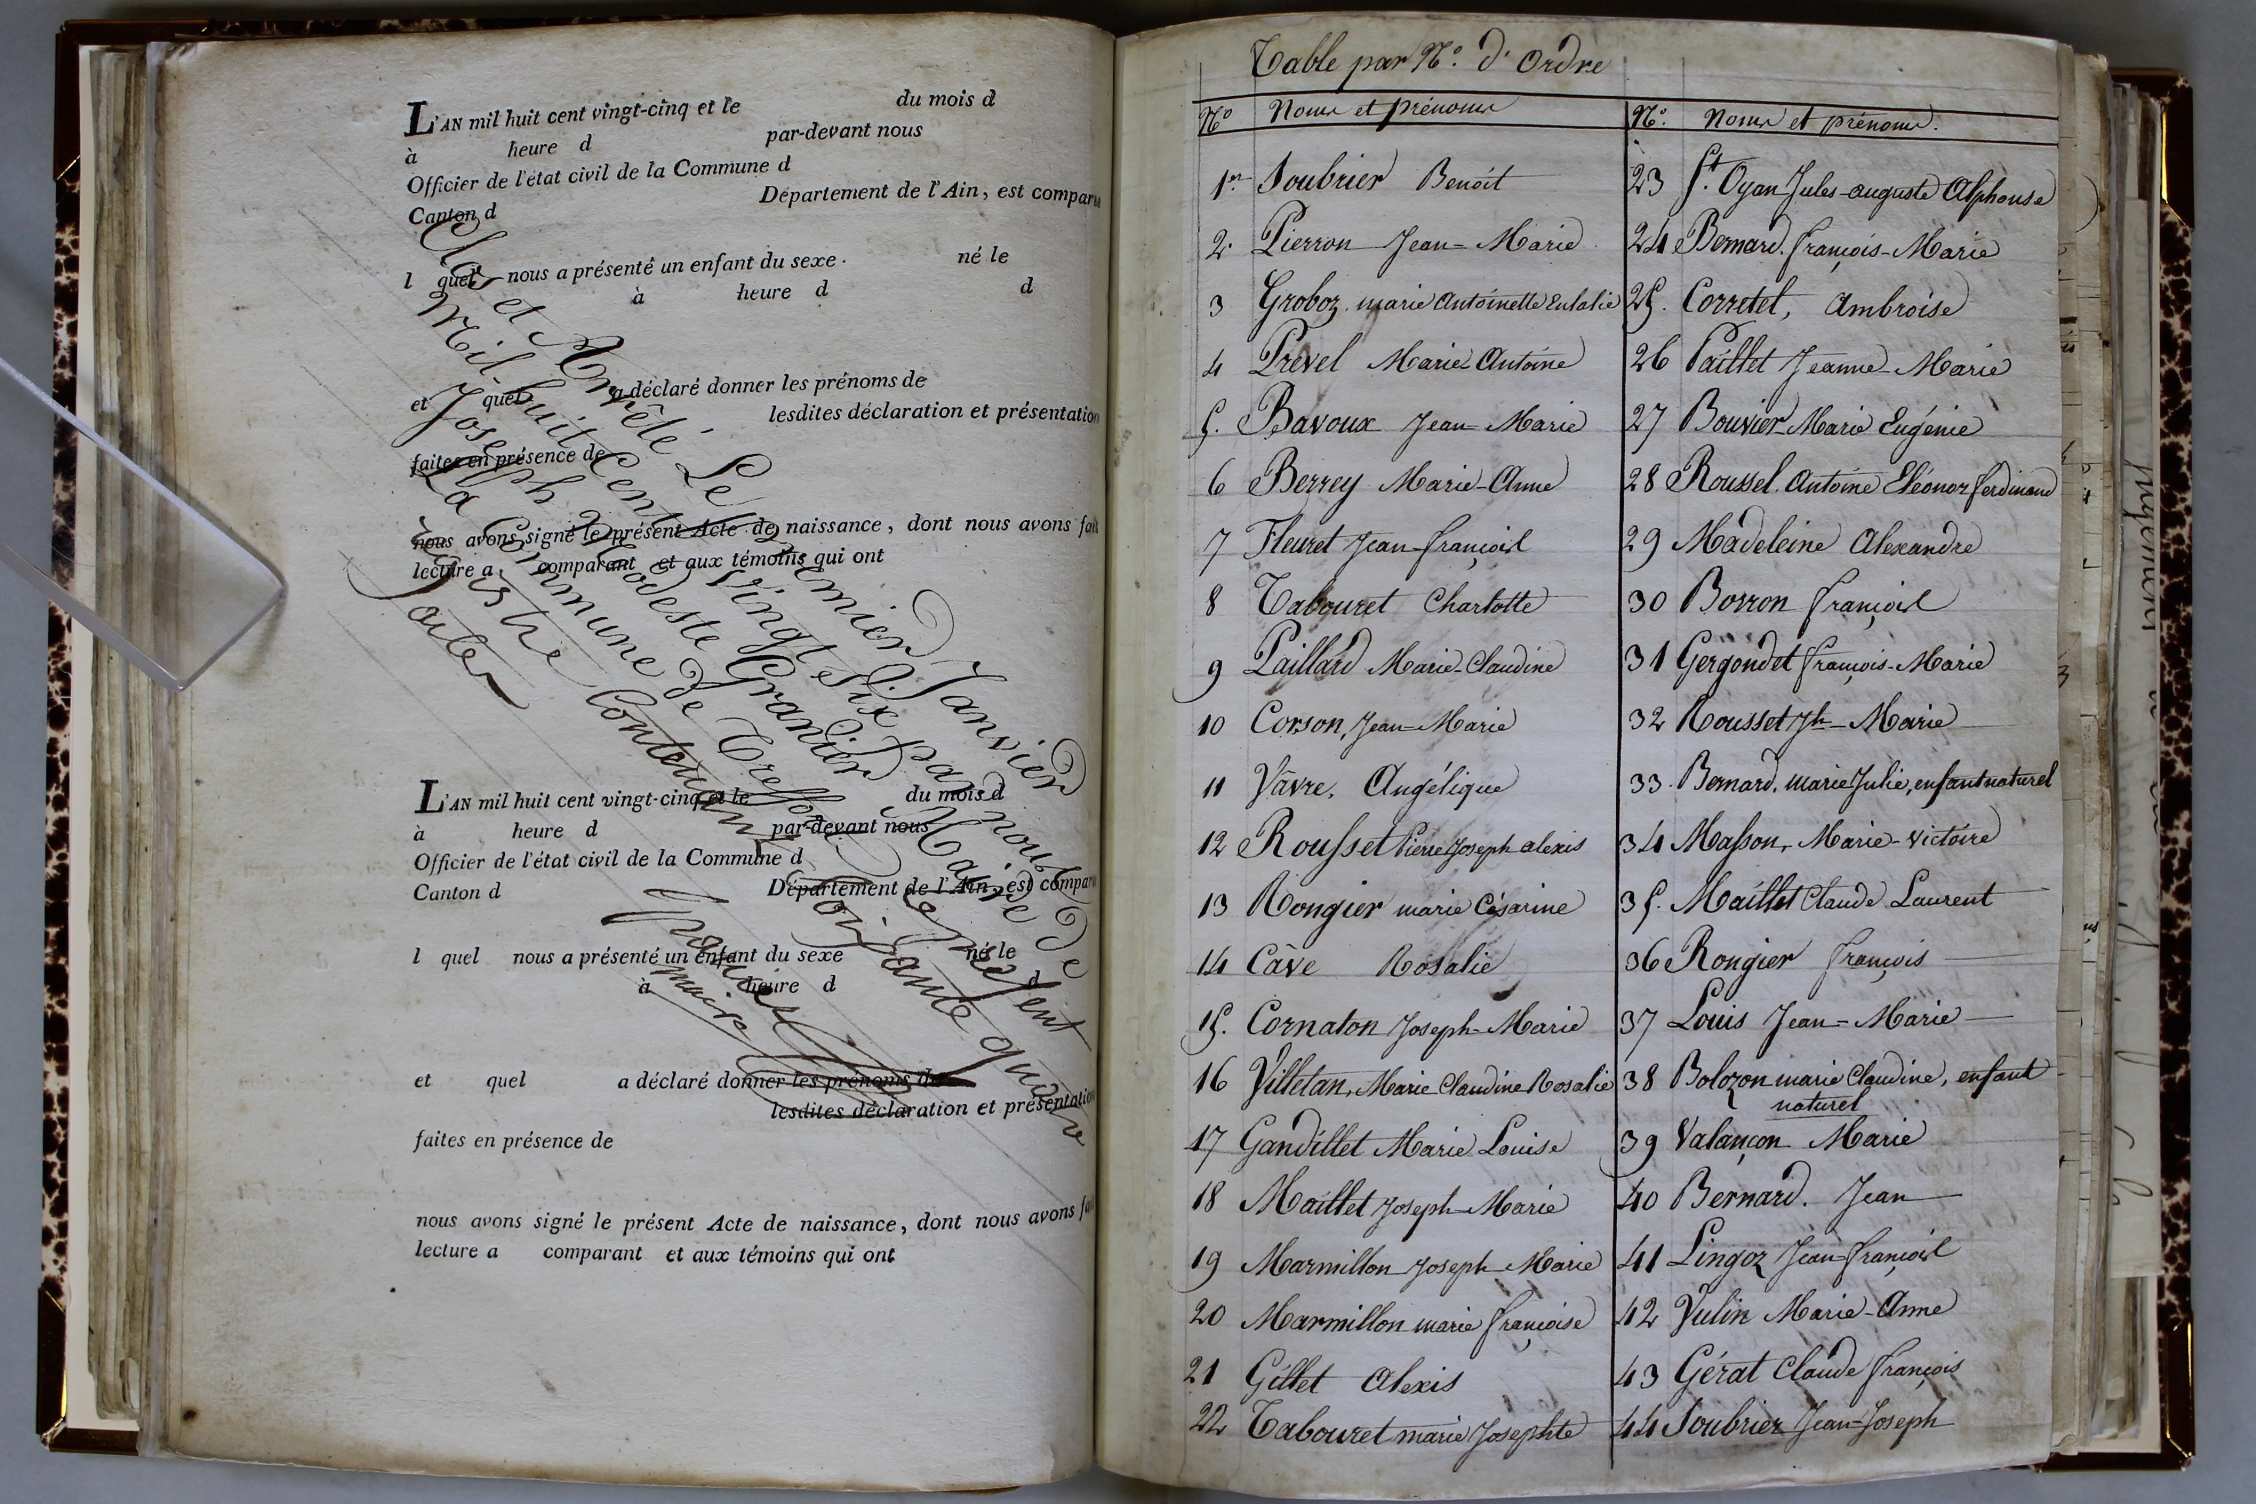 L'AN mil huit cent vingt-cinq et le du mois d
à heure d par-devant nous
Officier de l'état civil de la Commune d
Canton d Département de l'Ain, est comparu
l quel nous a présenté un enfant du sexe né le
à heure d d
et quel a déclaré donner les prénoms de
lesdites déclaration et présentation
faites en présence de
nous avons signé le présent Acte de naissance, dont nous avons fait
lecture a comparant et aux témoins qui ont
Clos et Arrêté Le premier Janvier
Mil huit Cent vingt Six par nous
Joseph Modeste Grandier Maire de
La Commune de Treffort Le présent
registre Contenant Soixante quatre
actes
maire
L'AN mil huit cent vingt-cinq et le du mois d
à heure d par-devant nous
Officier de l'état civil de la Commune d
Canton d Département de l'Ain, est comparu
l quel nous a présenté un enfant du sexe né le
à heure d d
et quel a déclaré donner les prénoms de
lesdites déclaration et présentation
faites en présence de
nous avons signé le présent Acte de naissance, dont nous avons fait
lecture a comparant et aux témoins qui ont
Table par N.º d'Ordre
Nº Noms et prénoms
1er Soubrier Benoit
2. Pierron Jean-Marie
3 Groboz marie Antoinette Eulalie
4 Prevel Marie Antoine
5. Bavoux Jean Marie
6 Berrey Marie-Anne
7 Fleuret Jean-françois
8 Tabouret Charlotte
9 Paillard Marie Claudine
10 Corson, Jean-Marie
11 Vâvre, Angélique
12 Rousset Pierre Joseph alexis
13 Rongier marie Césarine
14 Câve Rosalie
15. Cornaton Joseph-Marie
16 Villetan, Marie Claudine Rosalie
17 Gandillet Marie Louise
18 Maillet Joseph Marie
19 Marmillon Joseph Marie
20 Marmillon marie françoise
21 Gillet Alexis
22 Tabouret marie Josephte
N.º Noms et prénoms.
23 St. Oyan Jules-auguste Alphonse
24 Bernard. françois-Marie
25. Corretel, Ambroise
26 Paillet Jeanne-Marie
27 Bouvier Marie Eugénie
28 Roussel Antoine Eléonor ferdinand
29 Madeleine Alexandre
30 Borron françois
31 Gergondet françois-Marie
32 Rousset Jh-Marie
33. Bernard, marie Julie, enfant naturel
34 Masson, Marie-Victoire
35. Maillet Claude Laurent
36 Rongier françois
37 Louis Jean-Marie
38 Bolozon marie Claudine, enfant
naturel
39 Valançon Marie
40 Bernard. Jean
41 Lingoz Jean-françois
42 Vulin Marie-Anne
43 Gérat Claude françois
44 Soubrier Jean-Joseph